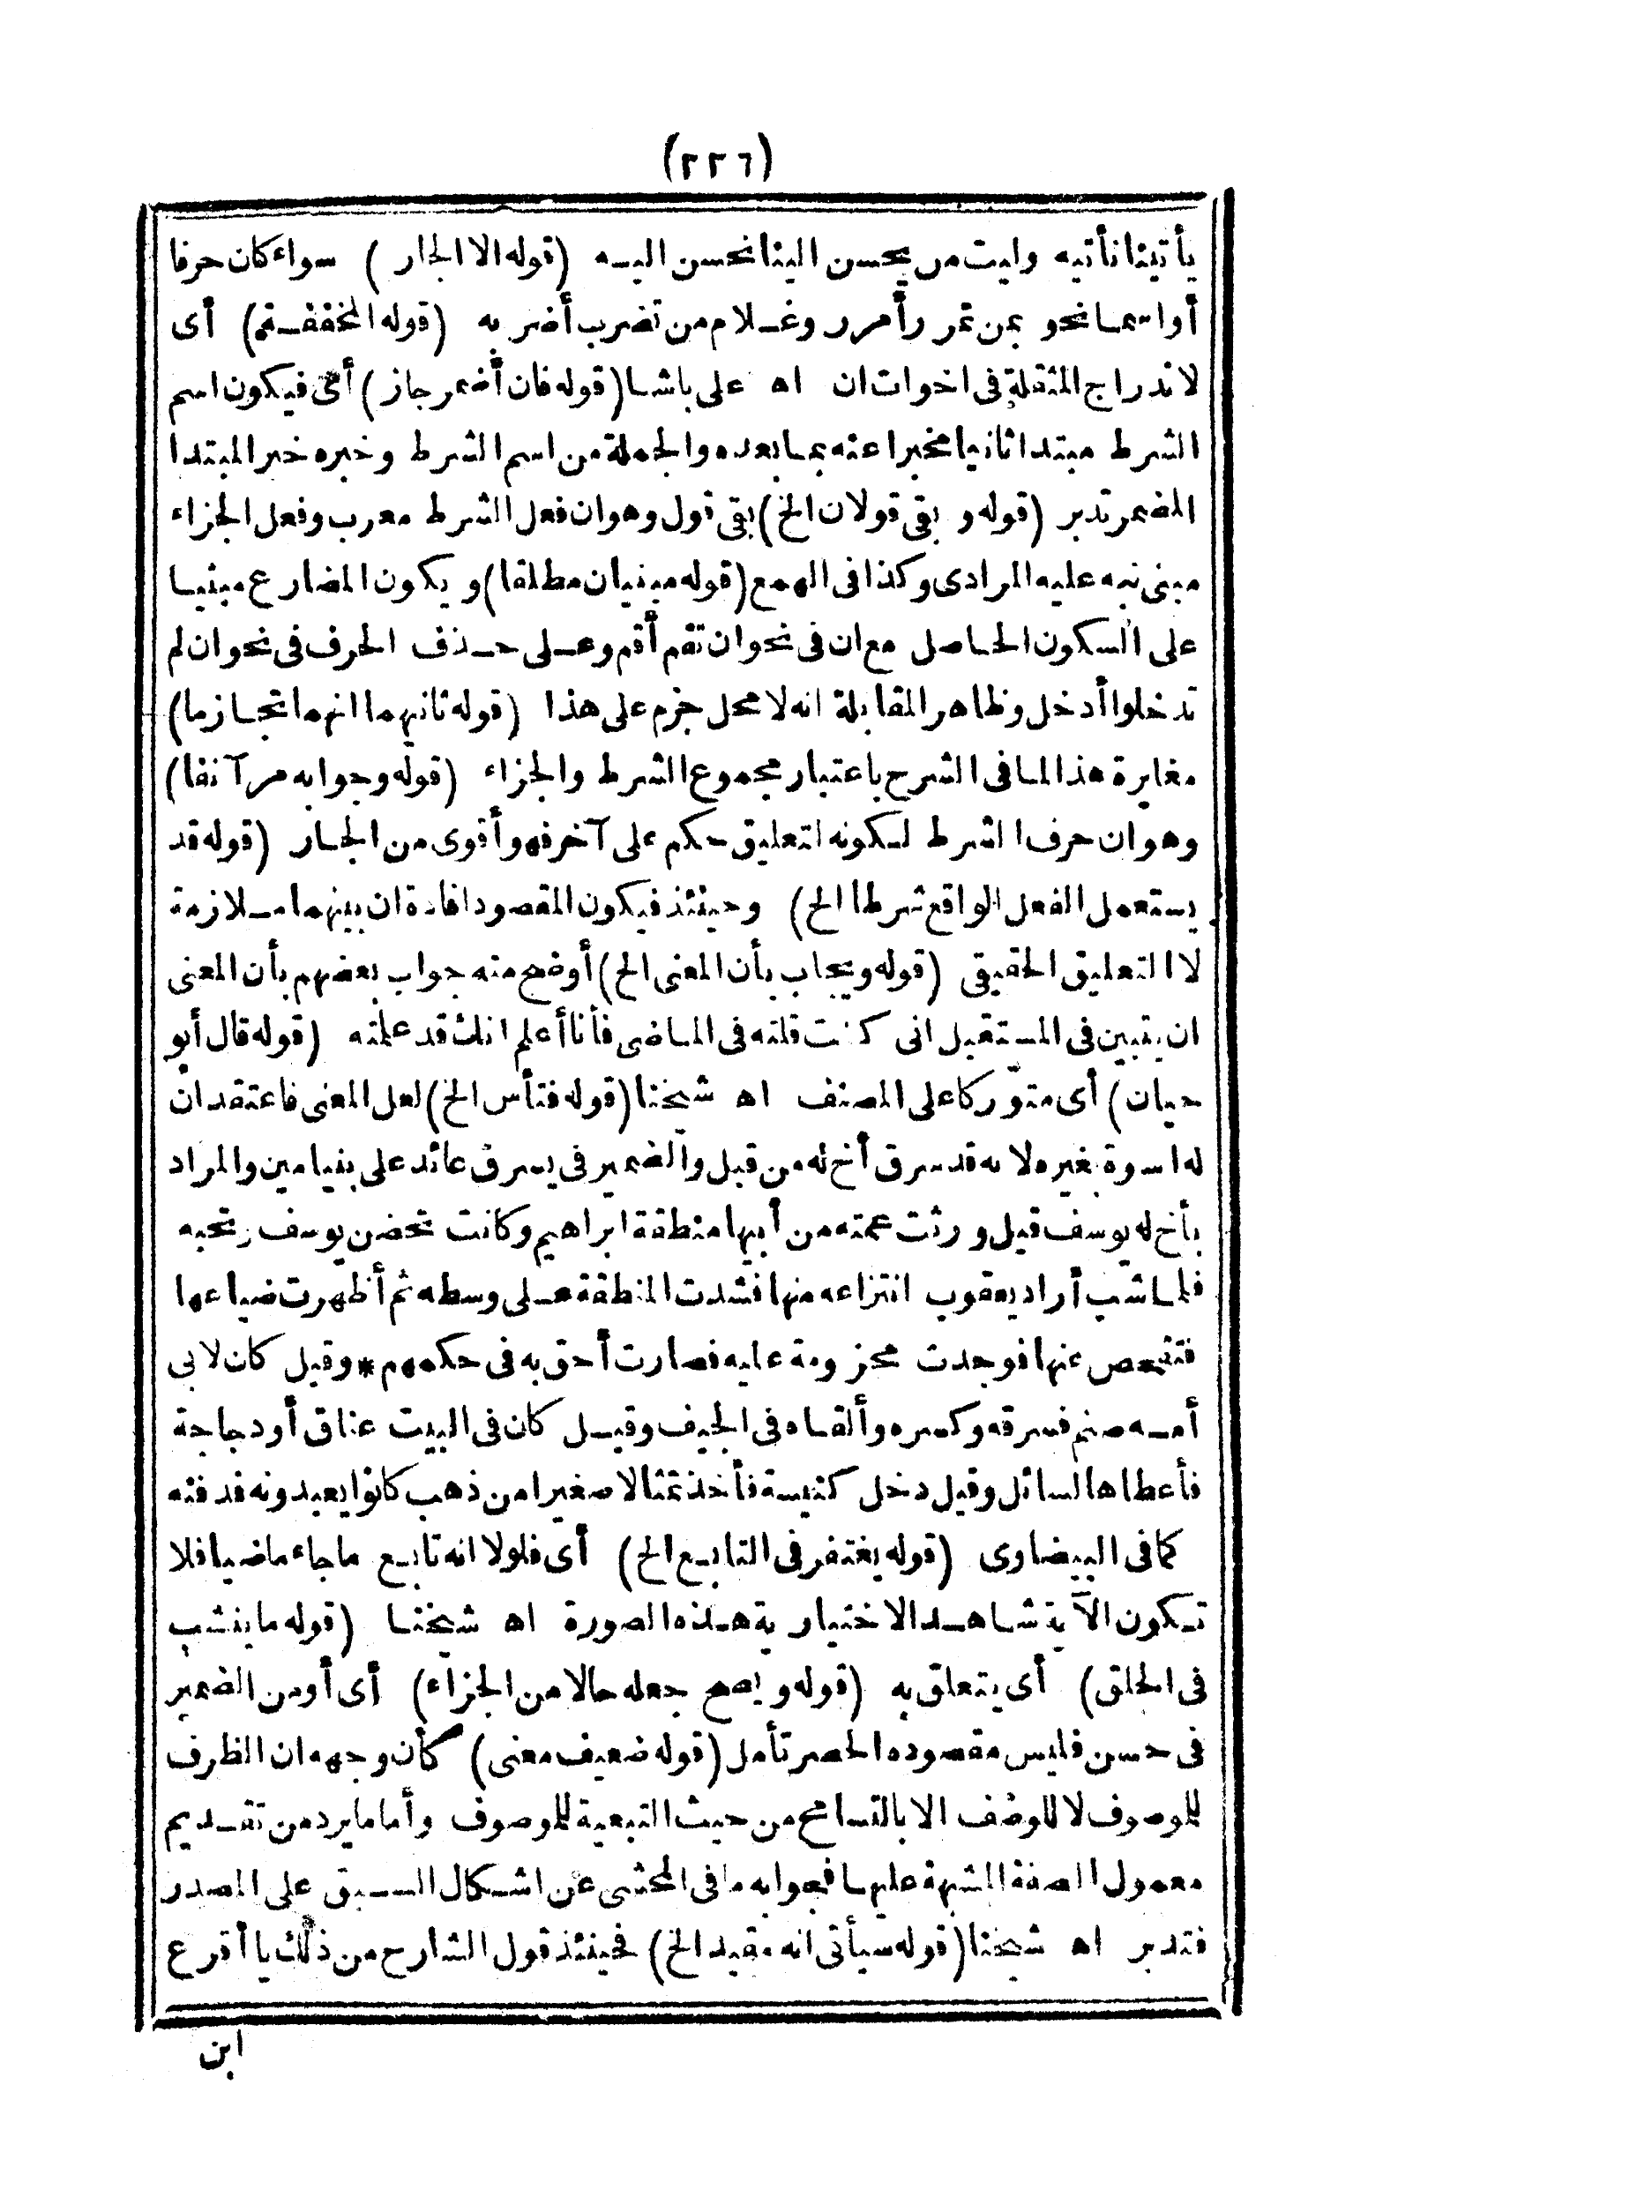 (٢٢٦)
يأتينا نأتيه وليت من يحسن الينا نحسن اليه (قوله الا الجار) سواء كان حرفا
أو اسما نحو بمن تمرر أمرر وغلام من تضرب أضربه (قوله المخففة) أى
لاندراج المثقلة فى اخوات ان اه على باشا (قوله فان أضمر جاز) أى فيكون اسم
الشرط مبتدا ثانيا مخبرا عنه بما بعده والجملة من اسم الشرط وخبره خبر المبتدا
المضمر تدبر (قوله و بقى قولان الخ) بقى قول وهو ان فعل الشرط معرب وفعل الجزاء
مبنى نبه عليه المرادى وكذا فى الهمع (قوله مبنيان مطلقا) ويكون المضارع مبنيا
على السكون الحاصل مع ان فى نحو ان تقم أقم وعلى حذف الحرف فى نحو ان لم
تدخلوا أدخل وظاهر المقابلة انه لا محل جزم على هذا (قوله ثانيهما انهما تجازما)
مغايرة هذا لما فى الشرح باعتبار مجموع الشرط والجزاء (قوله وجوابه مر آنفا)
وهو ان حرف الشرط لكونه لتعليق حكم على آخر فهو أقوى من الجار (قوله قد
يستعمل الفعل الواقع شرطا الخ) وحينئذ فيكون المقصود افادة ان بينهما ملازمة
لا التعليق الحقيقى (قوله ويجاب بأن المعنى الخ) أوضح منه جواب بعضهم بأن المعنى
ان يتبين فى المستقبل انى كنت قلته فى الماضى فأنا أعلم انك قد علمته (قوله قال أبو
حيان) أى متوّركا على المصنف اه شيخنا (قوله فتأس الخ) لعل المعنى فاعتقد ان
له اسوة بغيره لانه قد سرق أخ له من قبل والضمير فى يسرق عائد على بنيامين والمراد
بأخ له يوسف قيل ورثت عمته من أبيها منطقة ابراهيم وكانت تحضن يوسف وتحبه
فلما شب أراد يعقوب انتزاعه منها فشدت المنطقة على وسطه ثم أظهرت ضياعها
فتفحص عنها فوجدت محزومة عليه فصارت أحق به فى حكمهم * وقيل كان لابى
أمه صنم فسرقه وكسره وألقاه فى الجيف وقيل كان فى البيت عناق أو دجاجة
فأعطاها السائل وقيل دخل كنيسة فأخذ تمثالا صغيرا من ذهب كانوا يعبدونه فدفنه
كما فى البيضاوى (قوله يغتفر فى التابع الخ) أى فلولا انه تابع ما جاء ماضيا فلا
تكون الآية شاهد الاختيارية هذه الصورة اه شيخنا (قوله ما ينشب
فى الحلق) أى يتعلق به (قوله ويصح جعله حالا من الجزاء) أى أو من الضمير
فى حسن فليس مقصوده الحصر تأمل (قوله ضعيف معنى) كأن وجهه ان الظرف
للموصوف لا للوصف الا بالتسامح من حيث التبعية للموصوف وأما ما يرد من تقديم
معمول الصفة المشبهة عليها فجوابه ما فى المحشى عن اشكال السبق على المصدر
فتدبر اه شيخنا (قوله سيأتى انه مقيد الخ) فحينئذ قول الشارح من ذلك يا أقرع
ابن